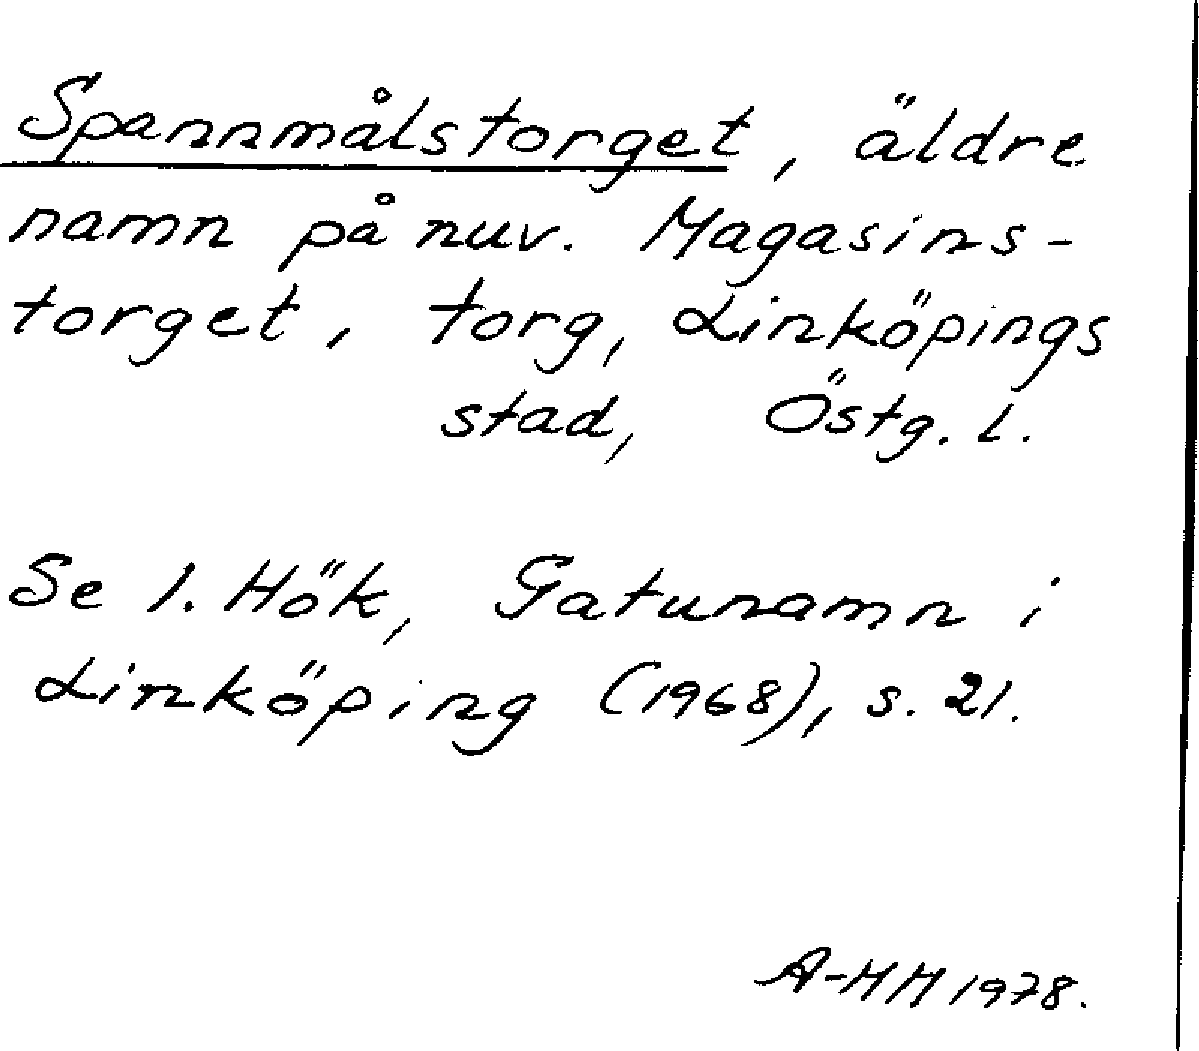 Spannmålstorget, äldre
namn på nuv. Magasins-
torget, torg, Linköpings
stad, Östg. l.
Se I. Hök, Gatunamn i
Linköping (1968), s. 21.
A-HH 1978.